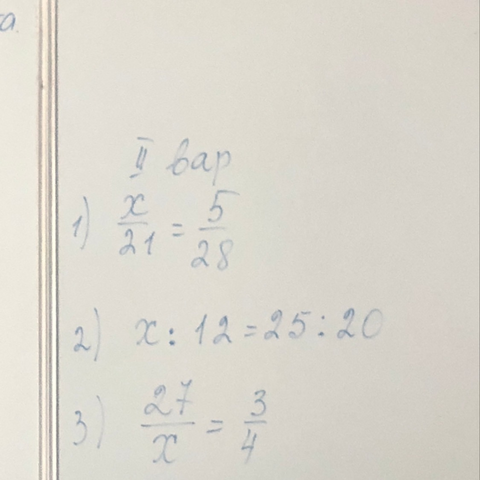 а
II вар
1) x/21 = 5/28
2) x : 12 = 25 : 20
3) 27/x = 3/4